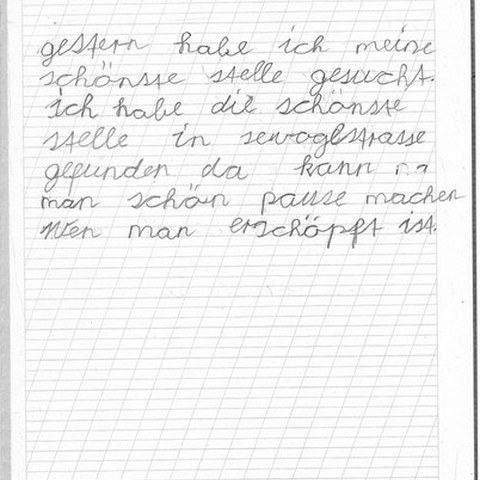 gestern habe ich meine
schönste stelle gesucht.
ich habe die schönste
stelle in sevogelstrasse
gefunden da kann
man schön pause machen
wen man erschöpft ist.